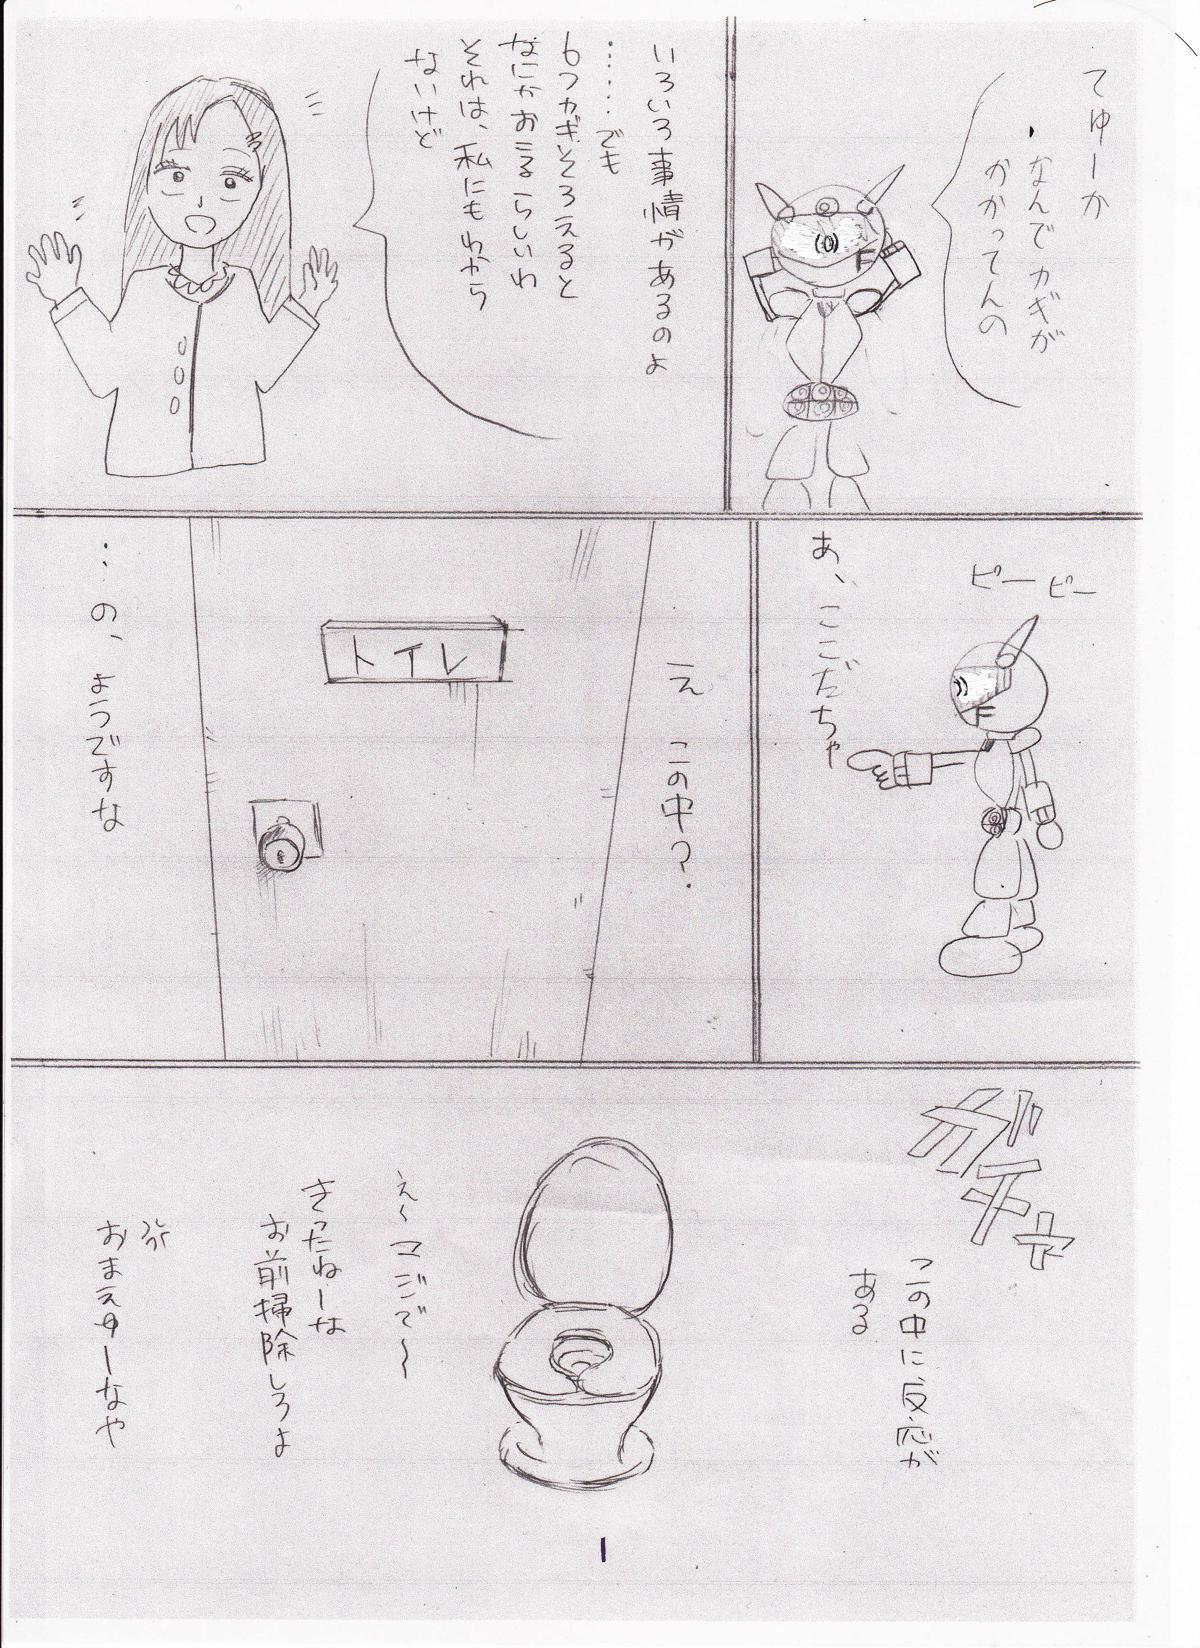 てゆーか
・なんでカギが
かかってんの
いろいろ事情があるのよ
……でも
6つカギそろえると
なにかおこるらしいわ
それは、私にもわから
ないけど
ピーピー
あ、ここだちゃ
え この中?
トイレ
…の、ようですな
ガチャ
この中に反応が
ある
え～マジで～
きったねーな
お前掃除しろよ
おまえがーなや
1